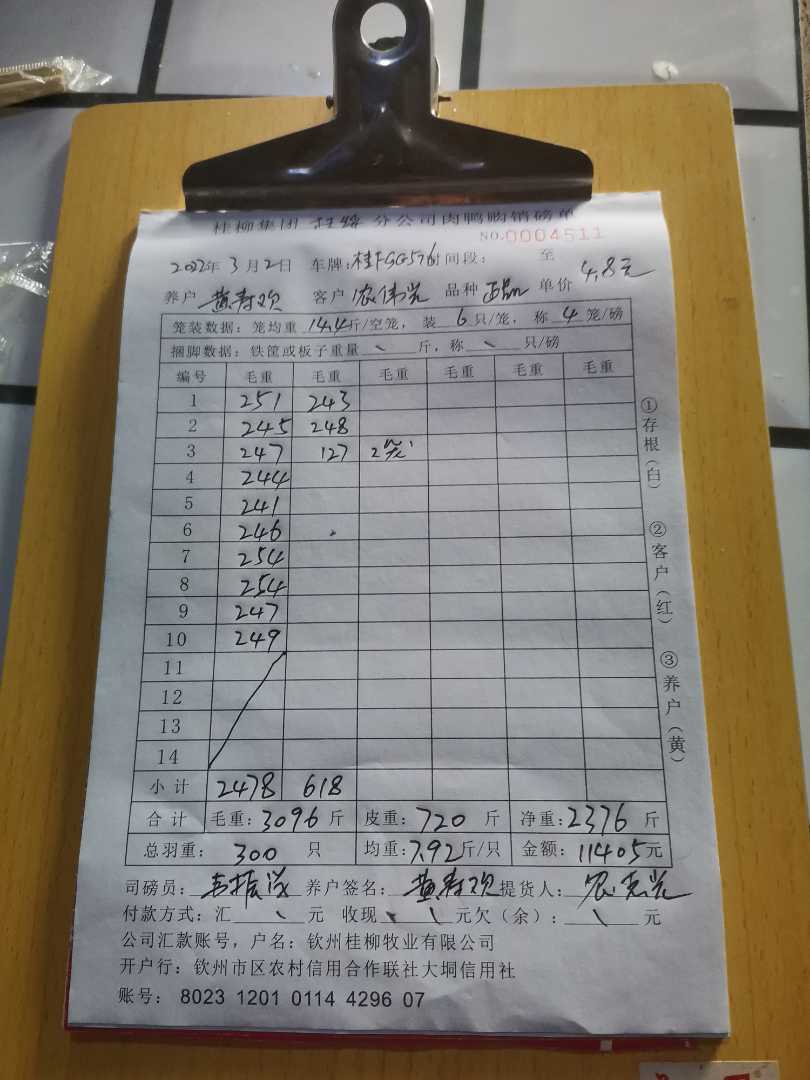 桂柳集团 分公司肉鸭购销磅单
NO.0004511
2022年3月2日 车牌: 时间段: 至
养户 黄寿欢 客户 农伟光 品种 单价 4.8元
笼装数据:笼均重 14.4斤/空笼, 装 6只/笼, 称 4笼/磅
捆脚数据:铁筐或板子重量 \ 斤, 称 \ 只/磅
编号 毛重 毛重 毛重 毛重 毛重 毛重
1 251 243
2 245 248
3 247 127 2笼
4 244
5 241
6 246
7 254
8 254
9 247
10 249
11
12
13
14
小计 2478 618
合计 毛重:3096斤 皮重:720斤 净重:2376斤
总羽重: 300 只 均重:7.92斤/只 金额:11405元
司磅员: 养户签名:黄寿欢 提货人:
付款方式:汇 \ 元 收现 \ 元欠(余): \ 元
公司汇款账号,户名:钦州桂柳牧业有限公司
开户行:钦州市区农村信用合作联社大垌信用社
账号: 8023 1201 0114 4296 07
①存根(白)
②客户(红)
③养户(黄)